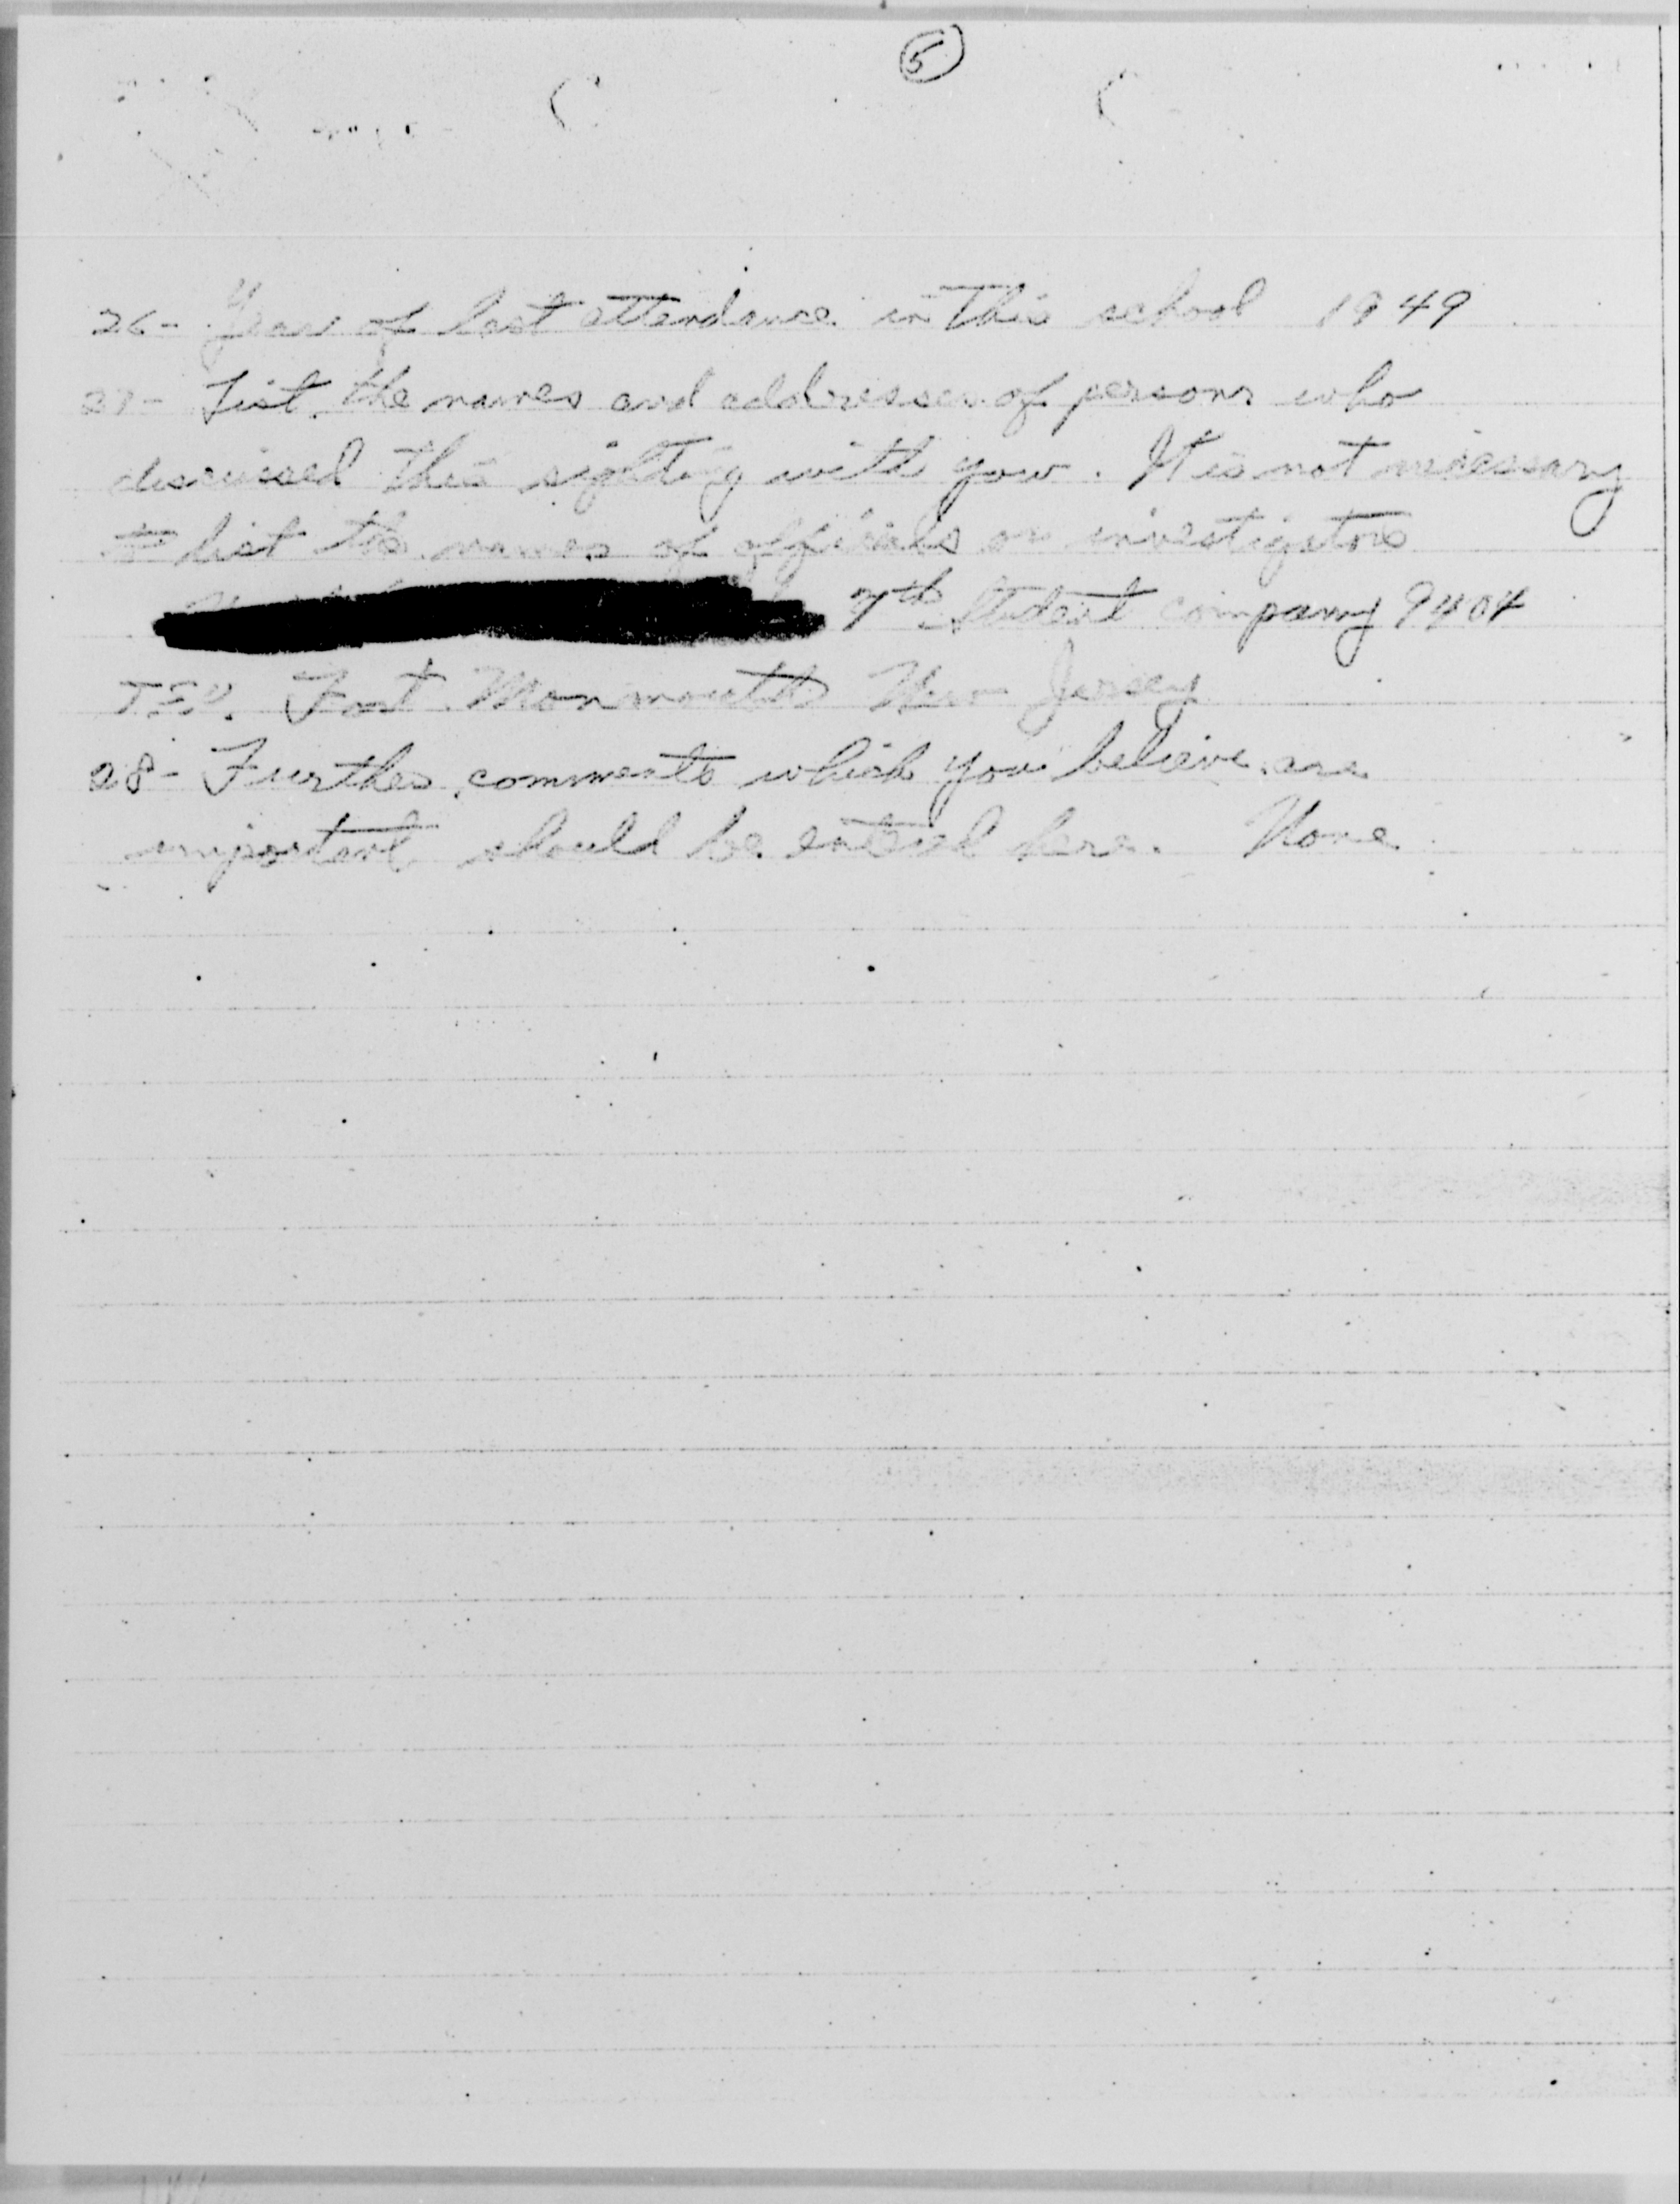 5
26- Year of last attendance in this school 1949
27- List the names and addresses of persons who
discussed this sighting with you. It is not necessary
to list the names of officials or investigators
7th Student company 9404
Fort Monmouth New Jersey
28- Further comments which you believe are
important should be entered here. None